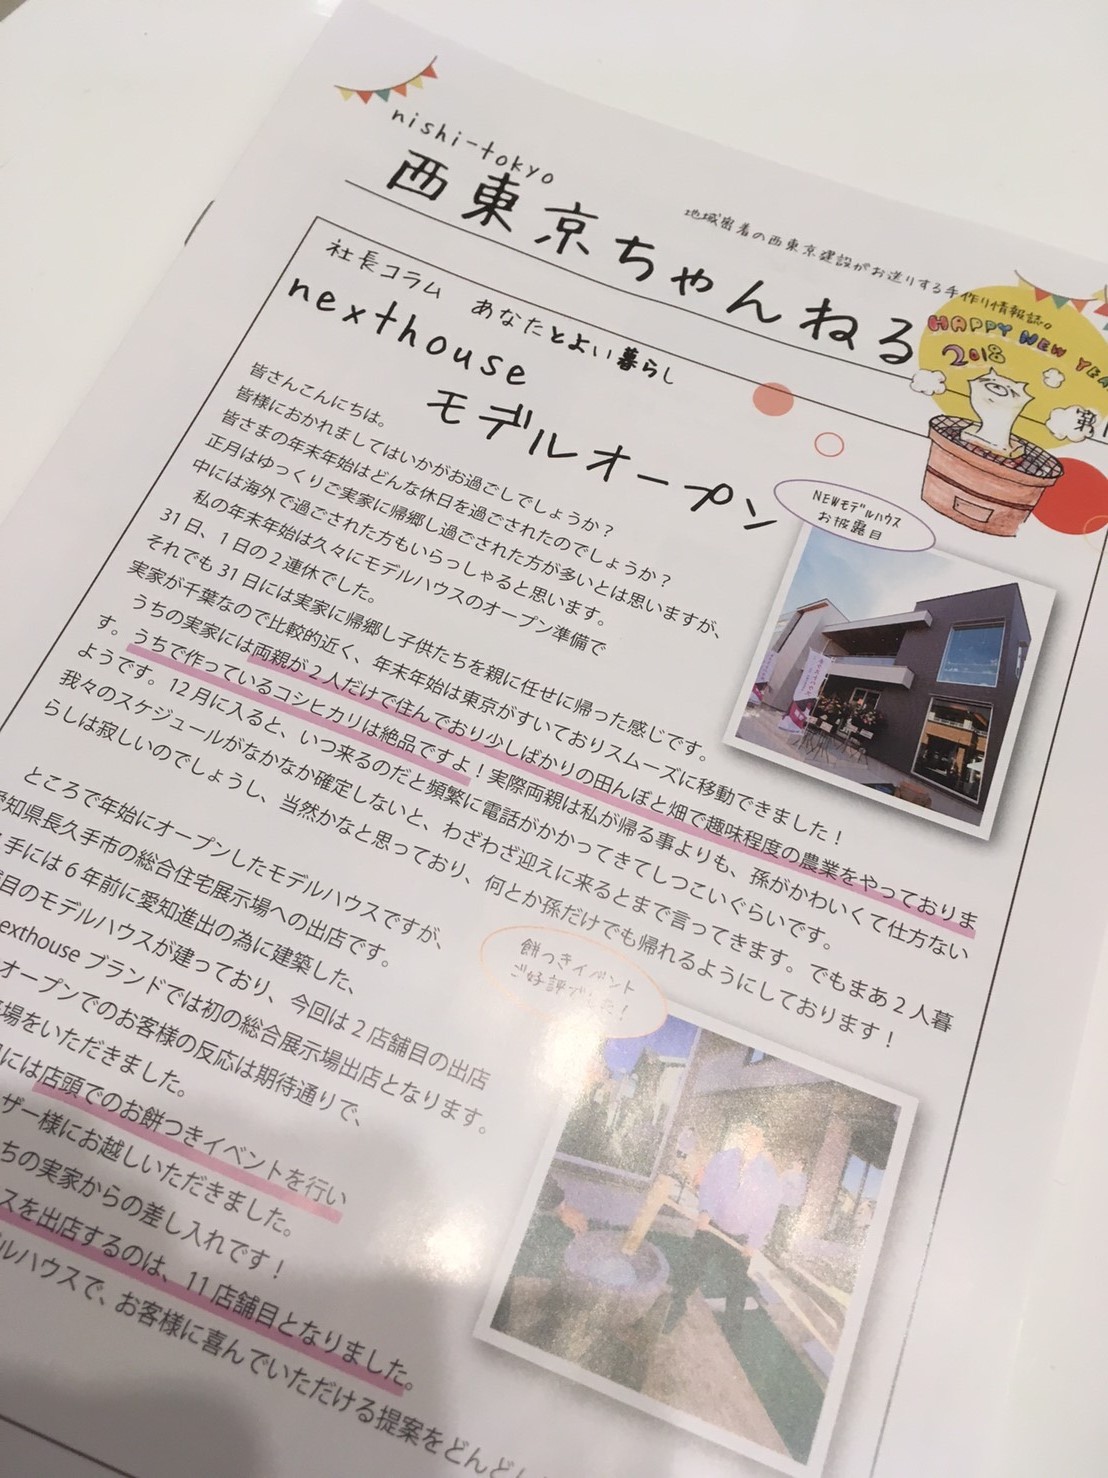 nishi-tokyo
西東京ちゃんねる
地域密着の西東京建設がお送りする手作り情報誌。
HAPPY NEW YEA
2018
第1
社長コラム あなたとよい暮らし
nexthouse
モデルオープン
NEWモデルハウス
お披露目
皆さんこんにちは。
皆様におかれましてはいかがお過ごしでしょうか？
皆さまの年末年始はどんな休日を過ごされたのでしょうか？
正月はゆっくりご実家に帰郷し過ごされた方が多いとは思いますが、
中には海外で過ごされた方もいらっしゃると思います。
私の年末年始は久々にモデルハウスのオープン準備で
31日、1日の2連休でした。
それでも31日には実家に帰郷し子供たちを親に任せに帰った感じです。
実家が千葉なので比較的近く、年末年始は東京がすいておりスムーズに移動できました！
うちの実家には両親が2人だけで住んでおり少しばかりの田んぼと畑で趣味程度の農業をやっておりま
す。うちで作っているコシヒカリは絶品ですよ！実際両親は私が帰る事よりも、孫がかわいくて仕方ない
ようです。12月に入ると、いつ来るのだと頻繁に電話がかかってきてしつこいぐらいです。
我々のスケジュールがなかなか確定しないと、わざわざ迎えに来るとまで言ってきます。でもまあ2人暮
らしは寂しいのでしょうし、当然かなと思っており、何とか孫だけでも帰れるようにしております！
ところで年始にオープンしたモデルハウスですが、
愛知県長久手市の総合住宅展示場への出店です。
手には6年前に愛知進出の為に建築した、
目のモデルハウスが建っており、今回は2店舗目の出店
exthouseブランドでは初の総合展示場出店となります。
オープンでのお客様の反応は期待通りで、
場をいただきました。
には店頭でのお餅つきイベントを行い
ザー様にお越しいただきました。
ちの実家からの差し入れです！
スを出店するのは、11店舗目となりました。
ルハウスで、お客様に喜んでいただける提案をどんどん
餅つきイベント
ご好評でした！